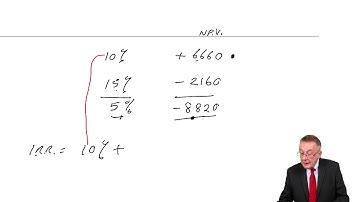 N.P.V.
10% + 6660 .
15% - 2160
5% - 8820
I.R.R. = 10% +